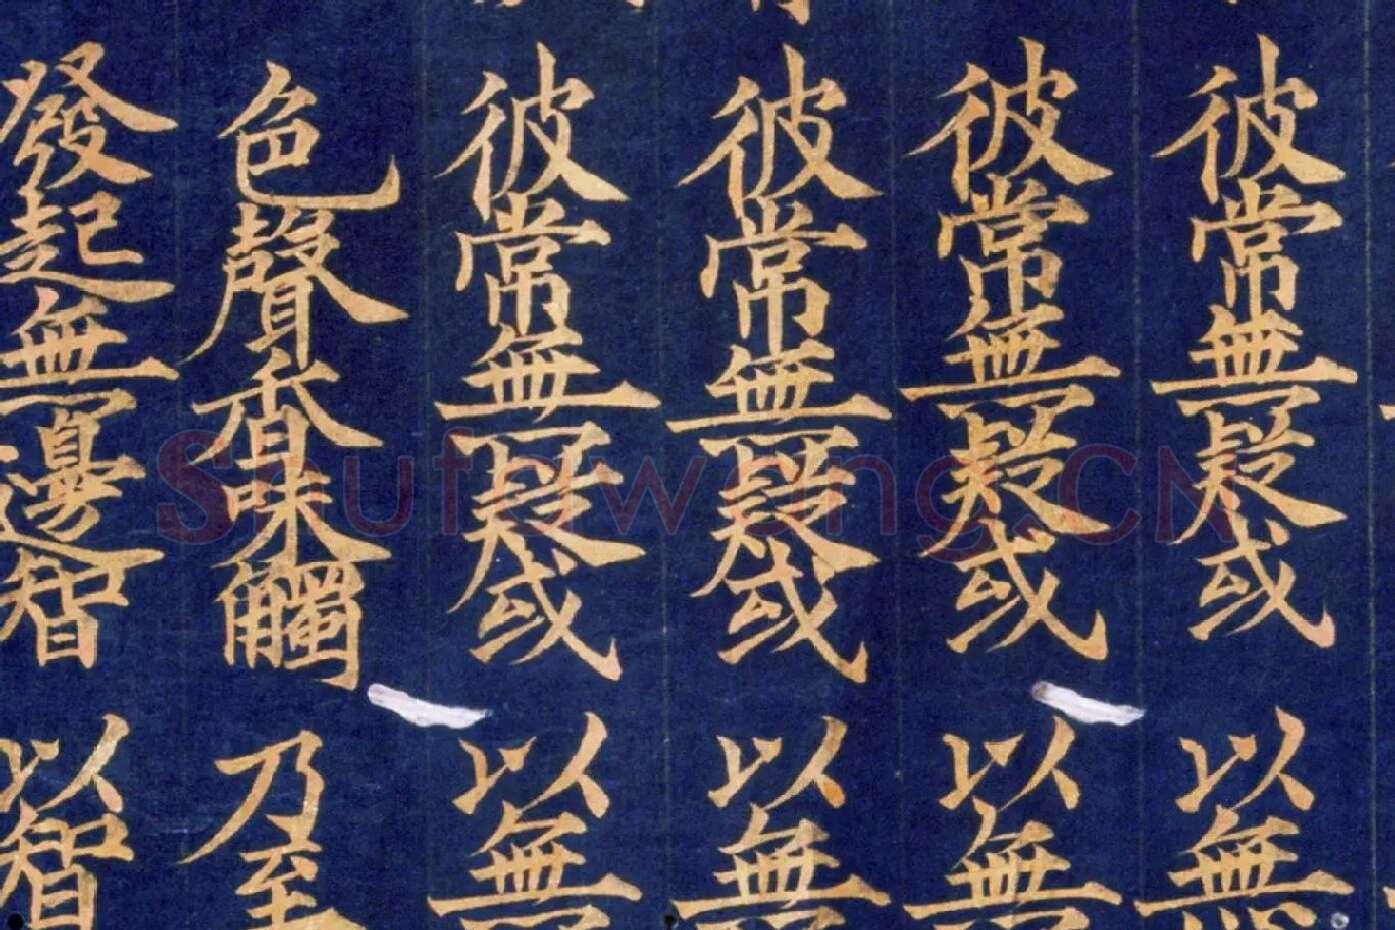 彼常無疑或以無
彼常無疑或以無
彼常無疑或以無
彼常無疑或以無
色聲香味觸乃至
發起無邊智以智
Shufawang.CN